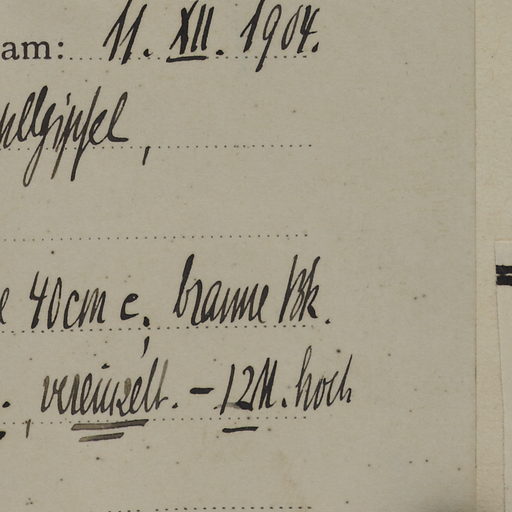 am: 11. XII. 1904.
gipfel,
40cm c; braune Bk.
., vereinzelt. – 12M. hoch